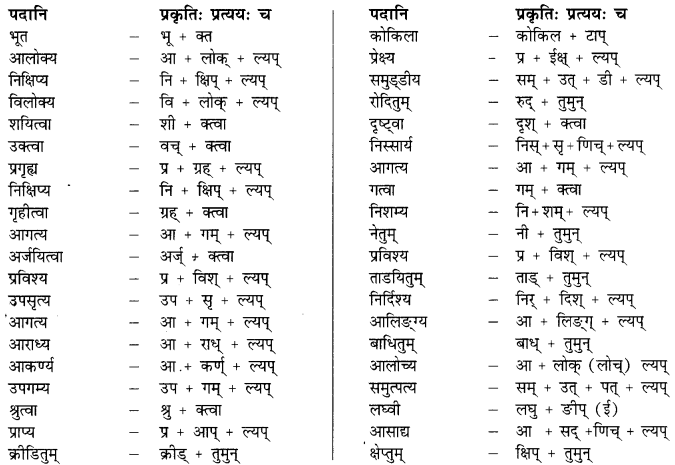 पदानि प्रकृतिः प्रत्ययः च
भूत – भू + क्त
आलोक्य – आ + लोक् + ल्यप्
निक्षिप्य – नि + क्षिप् + ल्यप्
विलोक्य – वि + लोक् + ल्यप्
शयित्वा – शी + क्त्वा
उक्त्वा – वच् + क्त्वा
प्रगृह्य – प्र + ग्रह् + ल्यप्
निक्षिप्य – नि + क्षिप् + ल्यप्
गृहीत्वा – ग्रह् + क्त्वा
आगत्य – आ + गम् + ल्यप्
अर्जयित्वा – अर्ज् + क्त्वा
प्रविश्य – प्र + विश् + ल्यप्
उपसृत्य – उप + सृ + ल्यप्
आगत्य – आ + गम् + ल्यप्
आराध्य – आ + राध् + ल्यप्
आकर्ण्य – आ + कर्ण् + ल्यप्
उपगम्य – उप + गम् + ल्यप्
श्रुत्वा – श्रु + क्त्वा
प्राप्य – प्र + आप् + ल्यप्
क्रीडितुम् – क्रीड् + तुमुन्
पदानि प्रकृतिः प्रत्ययः च
कोकिला – कोकिल + टाप्
प्रेक्ष्य – प्र + ईक्ष् + ल्यप्
समुड्डीय – सम् + उत् + डी + ल्यप्
रोदितुम् – रुद् + तुमुन्
दृष्ट्वा – दृश् + क्त्वा
निस्सार्य – निस्+सृ+णिच्+ल्यप्
आगत्य – आ + गम् + ल्यप्
गत्वा – गम् + क्त्वा
निशम्य – नि+शम्+ ल्यप्
नेतुम् – नी + तुमुन्
प्रविश्य – प्र + विश् + ल्यप्
ताडयितुम् – ताड् + तुमुन्
निर्दिश्य – निर् + दिश् + ल्यप्
आलिङ्ग्य – आ + लिङ्ग् + ल्यप्
बाधितुम् – बाध् + तुमुन्
आलोच्य – आ + लोक् (लोच्) ल्यप्
समुत्पत्य – सम् + उत् + पत् + ल्यप्
लघ्वी – लघु + ङीप् (ई)
आसाद्य – आ + सद् +णिच् + ल्यप्
क्षेप्तुम् – क्षिप् + तुमुन्